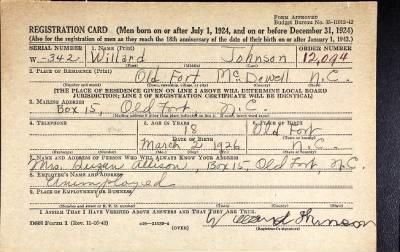 Form Approved
Budget Bureau No. 33-R012-42
REGISTRATION CARD (Men born on or after July 1, 1924, and on or before December 31, 1924)
(Also for the registration of men as they reach the 18th anniversary of the date of their birth on or after January 1, 1943.)
SERIAL NUMBER 1. NAME (Print) ORDER NUMBER
W.-342 Willard Johnson 12,094
(First) (Middle) (Last)
2. PLACE OF RESIDENCE (Print)
Old Fort McDowell N.C.
[THE PLACE OF RESIDENCE GIVEN ON LINE 2 ABOVE WILL DETERMINE LOCAL BOARD
JURISDICTION; LINE 2 OF REGISTRATION CERTIFICATE WILL BE IDENTICAL]
3. MAILING ADDRESS
Box 15, Old Fort N.C.
4. TELEPHONE 5. AGE IN YEARS 6. PLACE OF BIRTH
18 Old Fort
DATE OF BIRTH
March 2 1926 N.C.
7. NAME AND ADDRESS OF PERSON WHO WILL ALWAYS KNOW YOUR ADDRESS
Mrs. Susan Allison, Box 15, Old Fort, N.C.
8. EMPLOYER'S NAME AND ADDRESS
Unemployed
9. PLACE OF EMPLOYMENT OR BUSINESS
I AFFIRM THAT I HAVE VERIFIED ABOVE ANSWERS AND THAT THEY ARE TRUE.
(OVER)
(Registrant's signature)